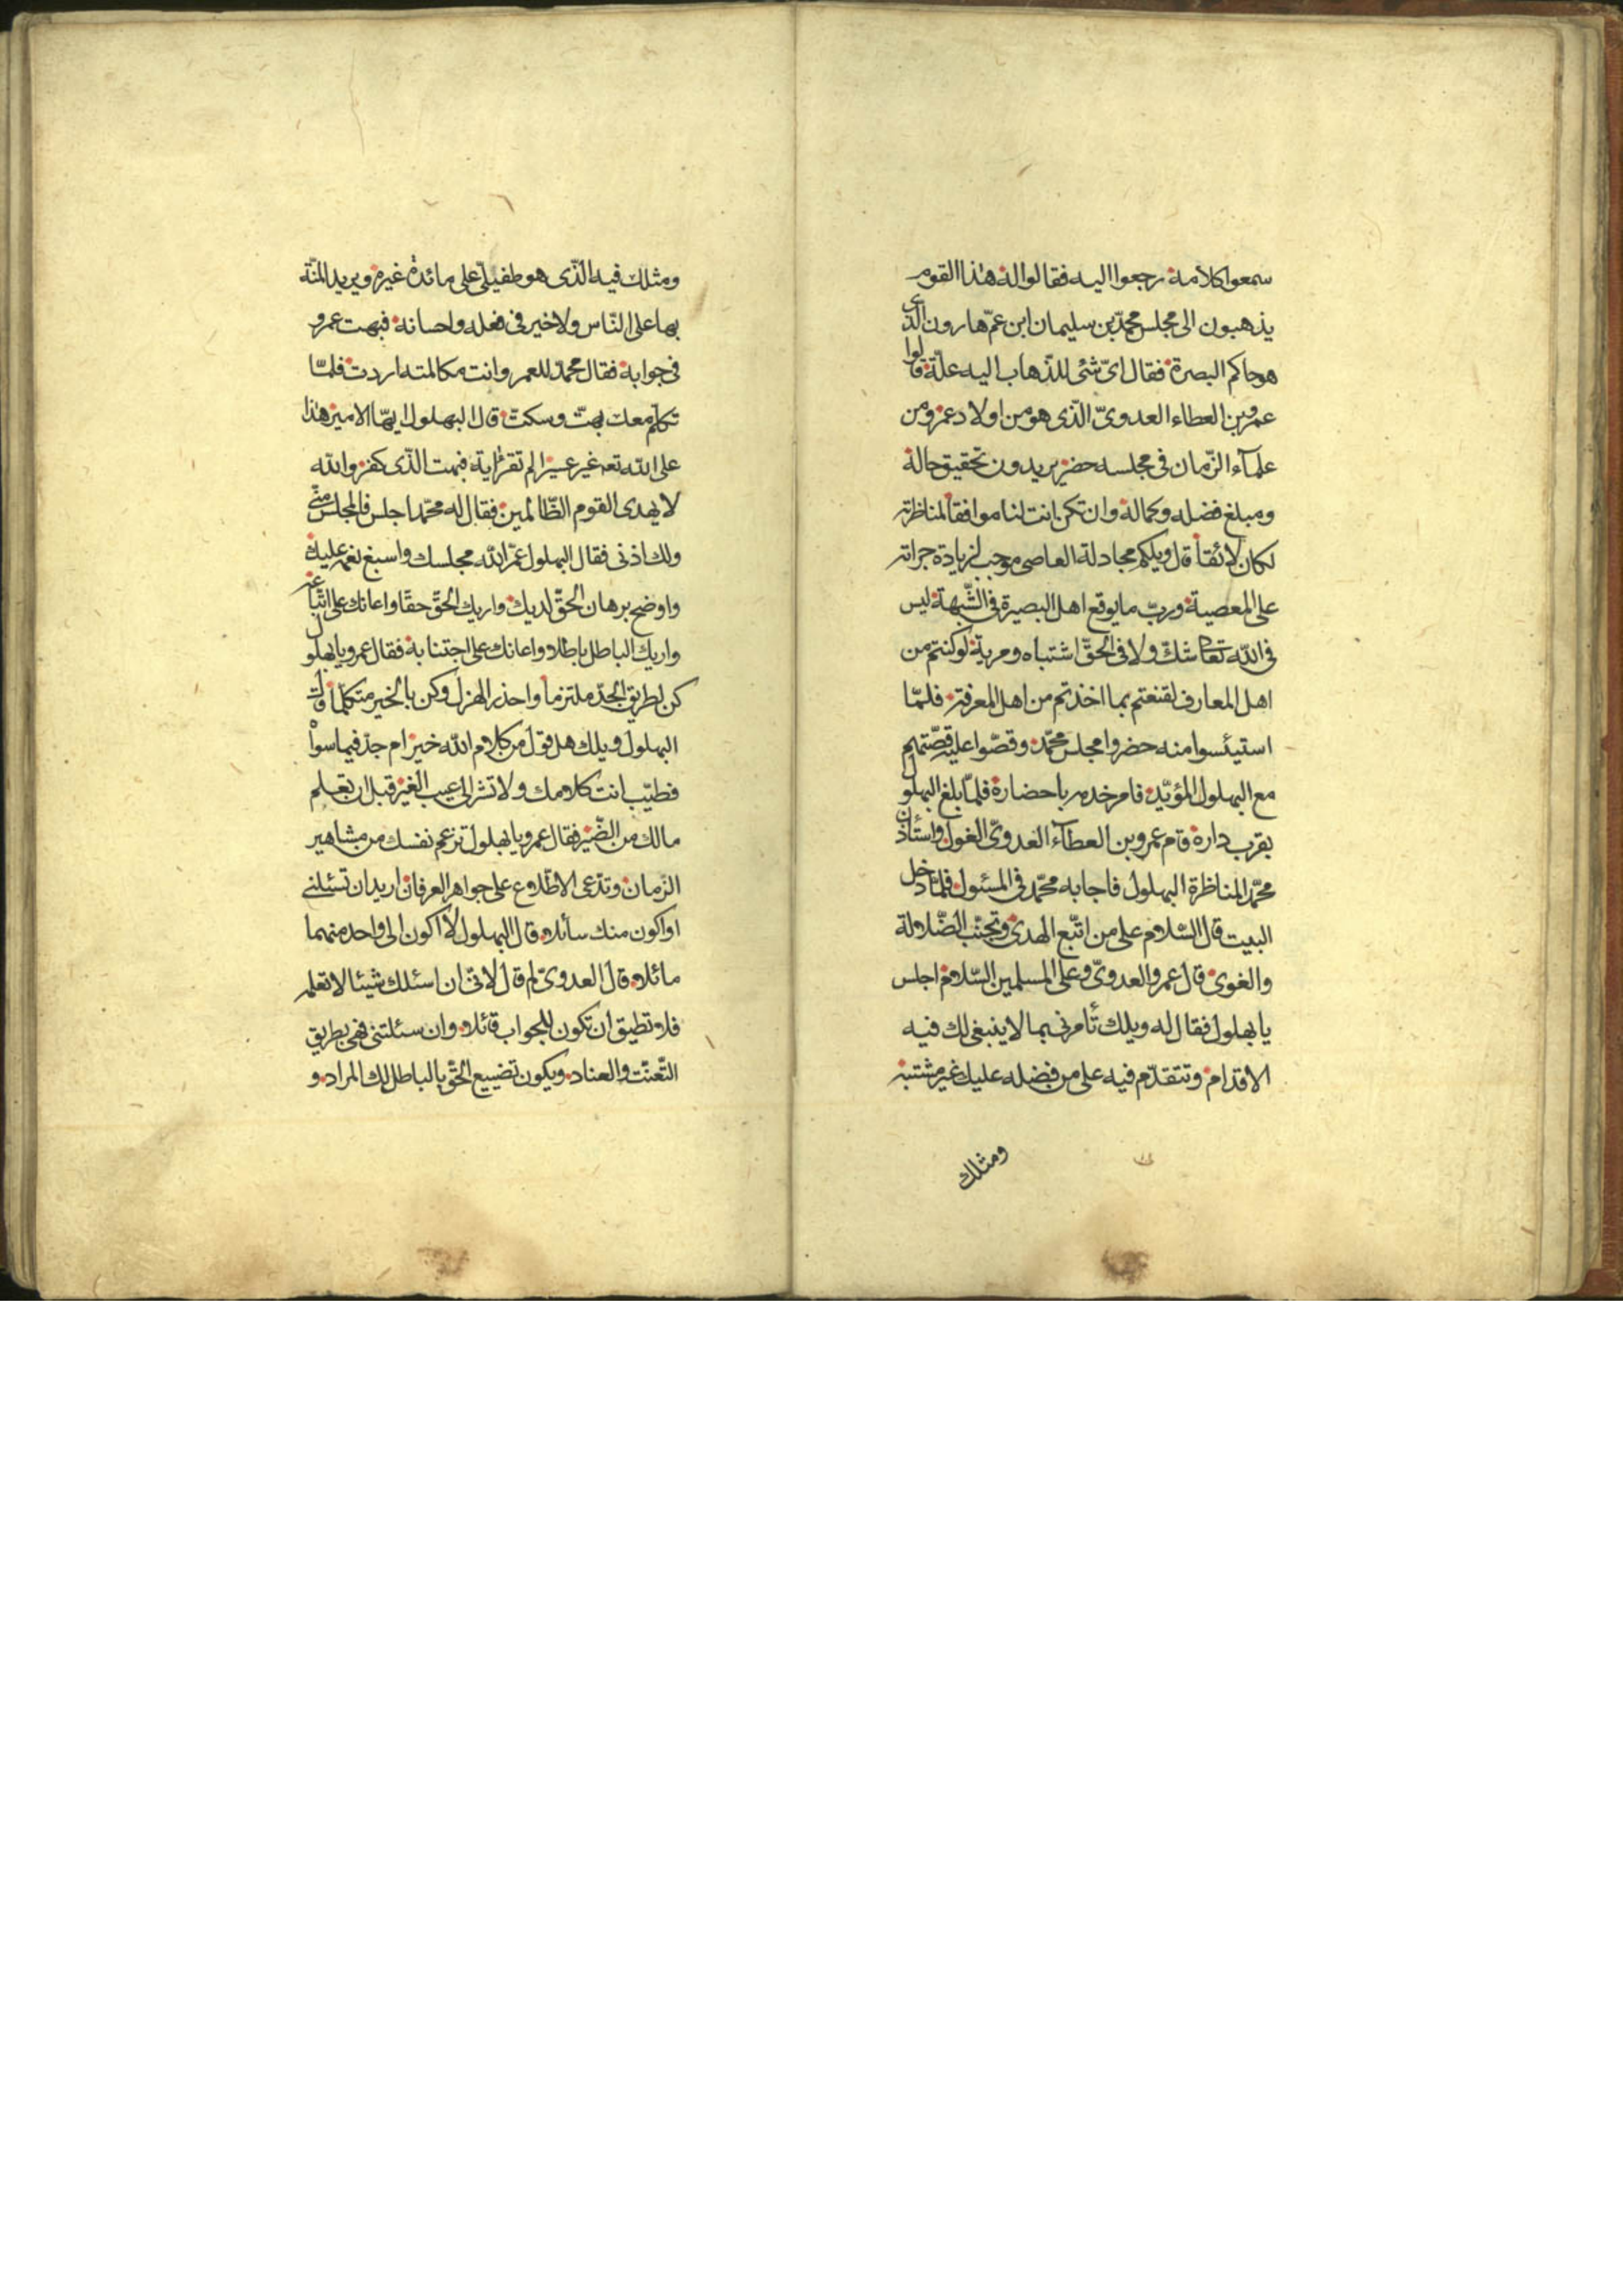 سمعوا كلامه رجعوا اليه فقالوا له هذا القوم
يذهبون الى مجلس محمّد بن سليمان ابن عمّ هارون الّذى
هو حاكم البصرة فقال اىّ شئى للذّهاب اليه علّة قالوا
عمرو بن العطاء العدوىّ الّذى هو من اولاد عمر ومن
علمآء الزّمان فى مجلسه حضر يريدون تحقيق حاله
ومبلغ فضله وكماله وان تكن انت لنا موافقاً لمناظرته
لكان لائقاً قال ويلكم مجادلة العاصى موجب لزيادة جراته
على المعصية وربّ ما يوقع اهل البصيرة فى الشّبهة ليس
فى اللّه تعا شكّ ولا فى الحقّ اشتباه ومرية لو كنتم من
اهل المعارف لقنعتم بما اخذتم من اهل المعرفة فلمّا
استيئسوا منه حضروا مجلس محمّد وقصّوا عليه قصّتهم
مع البهلول المؤيّد فامر خدمه باحضاره فلمّا بلغ البهلول
بقرب داره قام عمرو بن العطآء العدوىّ الغول واستأذن
محمّد المناظرة البهلول فاجابه محمّد فى المسئول فلمّا دخل
البيت قال السّلام على من اتّبع الهدى وتجنّب الضّلالة
والغوى قال عمرو العدوىّ وعلى المسلمين السّلام اجلس
يا بهلول فقال له ويلك تأمرنى بما لا ينبغى لك فيه
الاقدام وتتقدّم فيه على من فضله عليك غير مشتبه
ومثلك
ومثلك فيه الّذى هو طفيلىّ على مائدة غيره ويريد المنّة
بها على النّاس ولا خير فى فعله واحسانه فبهت عمرو
فى جوابه فقال محمّد للعمرو انت مكالمته اردت فلمّا
تكلّم معك بهتّ وسكتّ قال البهلول ايّها الامير هذا
على اللّه تعه غير عسير الم تقرء اية فبهت الّذى كفر واللّه
لا يهدى القوم الظّالمين فقال له محمّد اجلس فالمجلس منّى
ولك اذنى فقال البهلول عمّر اللّه مجلسك واسبغ نعمه عليك
واوضح برهان الحقّ لديك واريك الحقّ حقّا واعانك على اتّباعه
واريك الباطل باطلا واعانك على اجتنابه فقال عمرو يا بهلول
كن لطريق الجدّ ملتزما واحذر الهزل وكن بالخير متكلّما قال
البهلول ويلك هل قول من كلام اللّه خير ام جدّ فيما سواه
فطيّب انت كلامك ولا تشر الى عيب الغير قبل ان تعلم
مالك من الضّير فقال عمرو يا بهلول تزعم نفسك من مشاهير
الزّمان وتدّعى الاطّلاع على جواهر العرفان اريد ان تسئلنى
او اكون منك سائلا قال البهلول لا اكون الى واحد منهما
مائلا قال العدوىّ لم قال لانّى ان اسئلك شيئا لا تعلم
فلا تطيق ان تكون للجواب قائلا وان سئلتنى فهى بطريق
التّعنّت والعناد ويكون تضييع الحقّ بالباطل لك المراد و